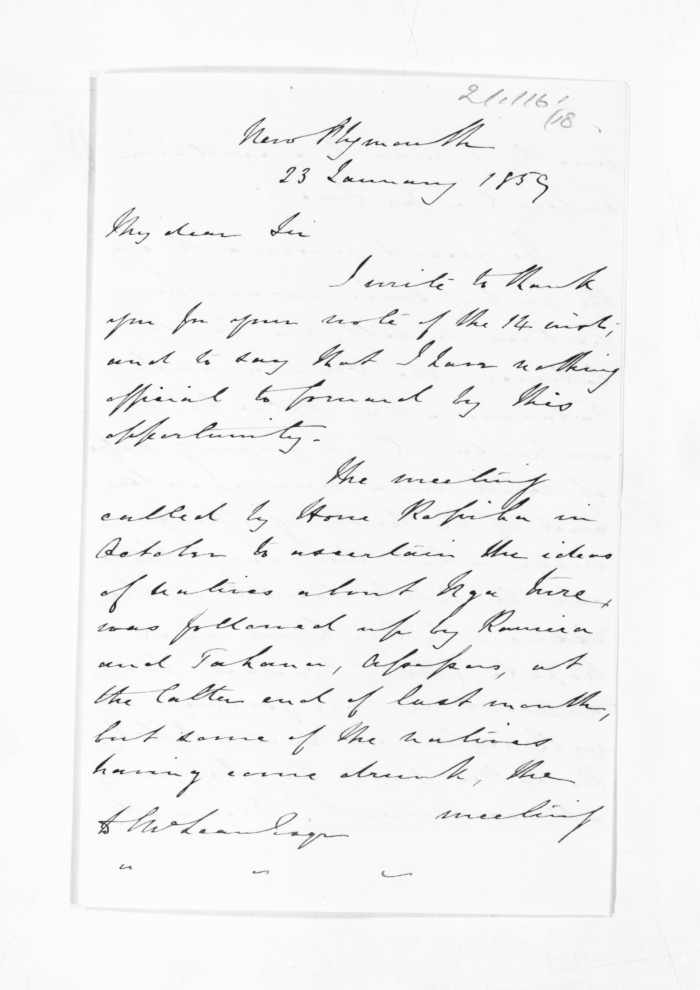 21/116/
/18
New Plymouth
23 January 1859
My dear Sir
I write to thank
you for your note of the 14 inst;
and to say that I have nothing
official to forward by this
opportunity.
The meeting
called by Hone Ropiha in
October to ascertain the ideas
of natives about Nga ture,
was followed up by
and Tahana, at
the latter end of last month,
but some of the natives
having come drunk, the
meeting
D McLean Esqr
" " "